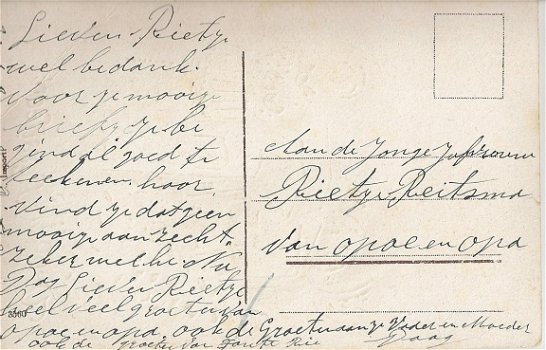 Lieven Rietje
wel bedank.
Voor je mooije
briefje je be
gind al goed te
teekenen. hoor.
Vind je dat geen
mooije aanzecht.
Zeker wel he Nu
Dag Lieven Rietje
heel veel groeten van
opoe en opa, ook de Groeten aan je Vader en Moeder
ook de groeten van Tante Rie Daag
Aan de Jonge Jufvrouw
Rietje Reitsma
van opoe en opa
Import